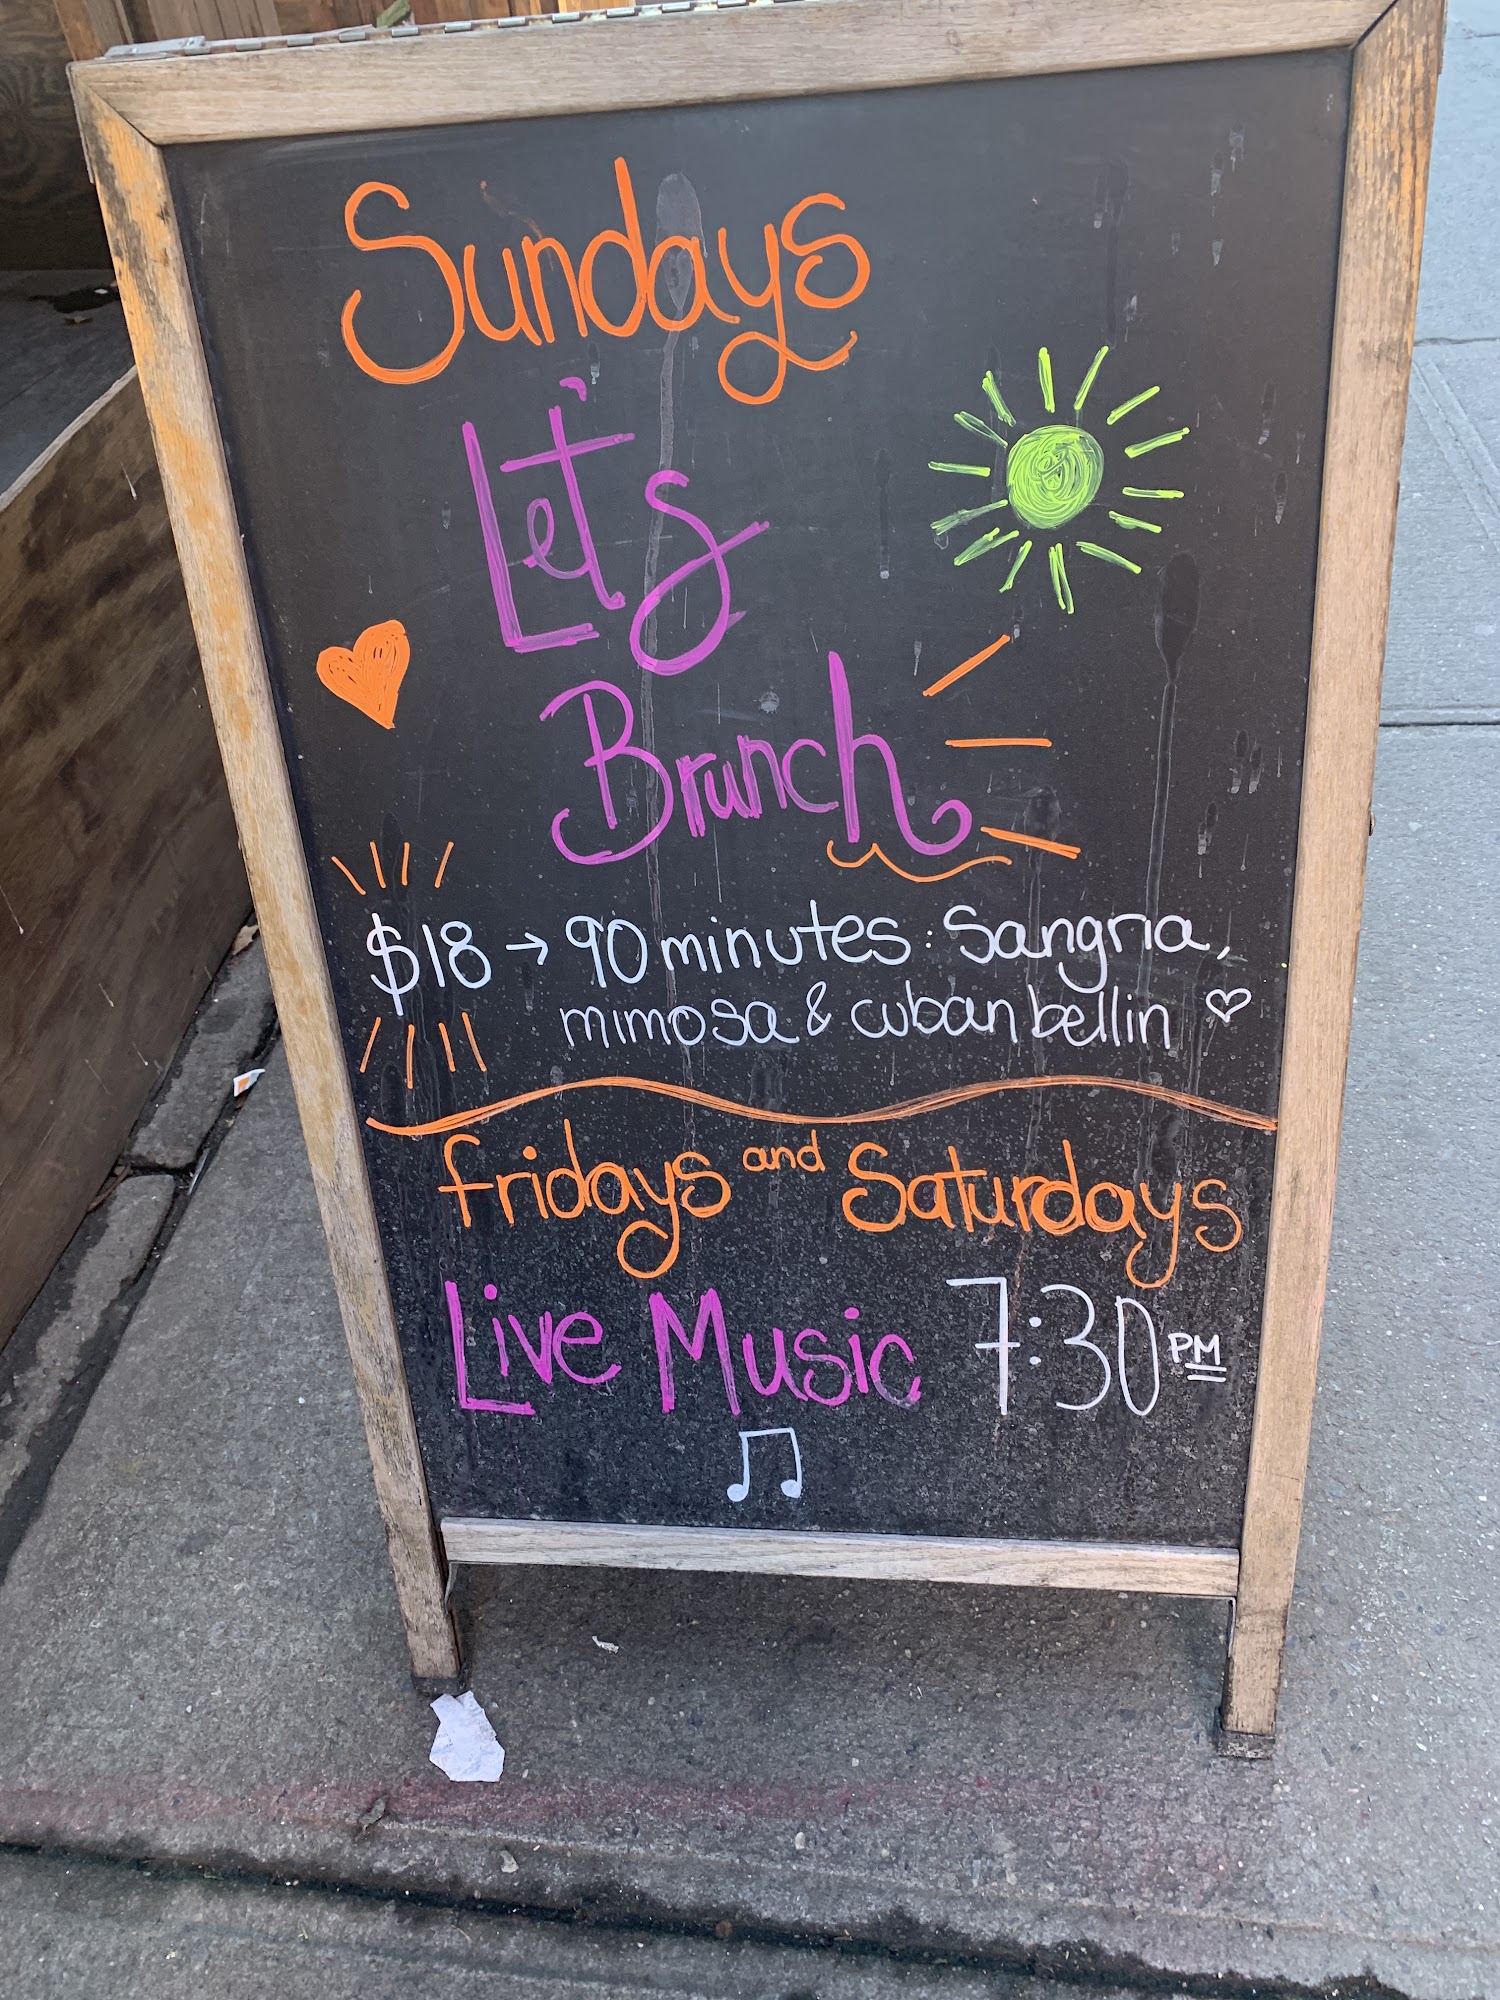 Sundays
Let's
Brunch
$18 → 90 minutes: Sangria,
mimosa & cuban bellin ♡
fridays and Saturdays
Live Music 7:30 PM